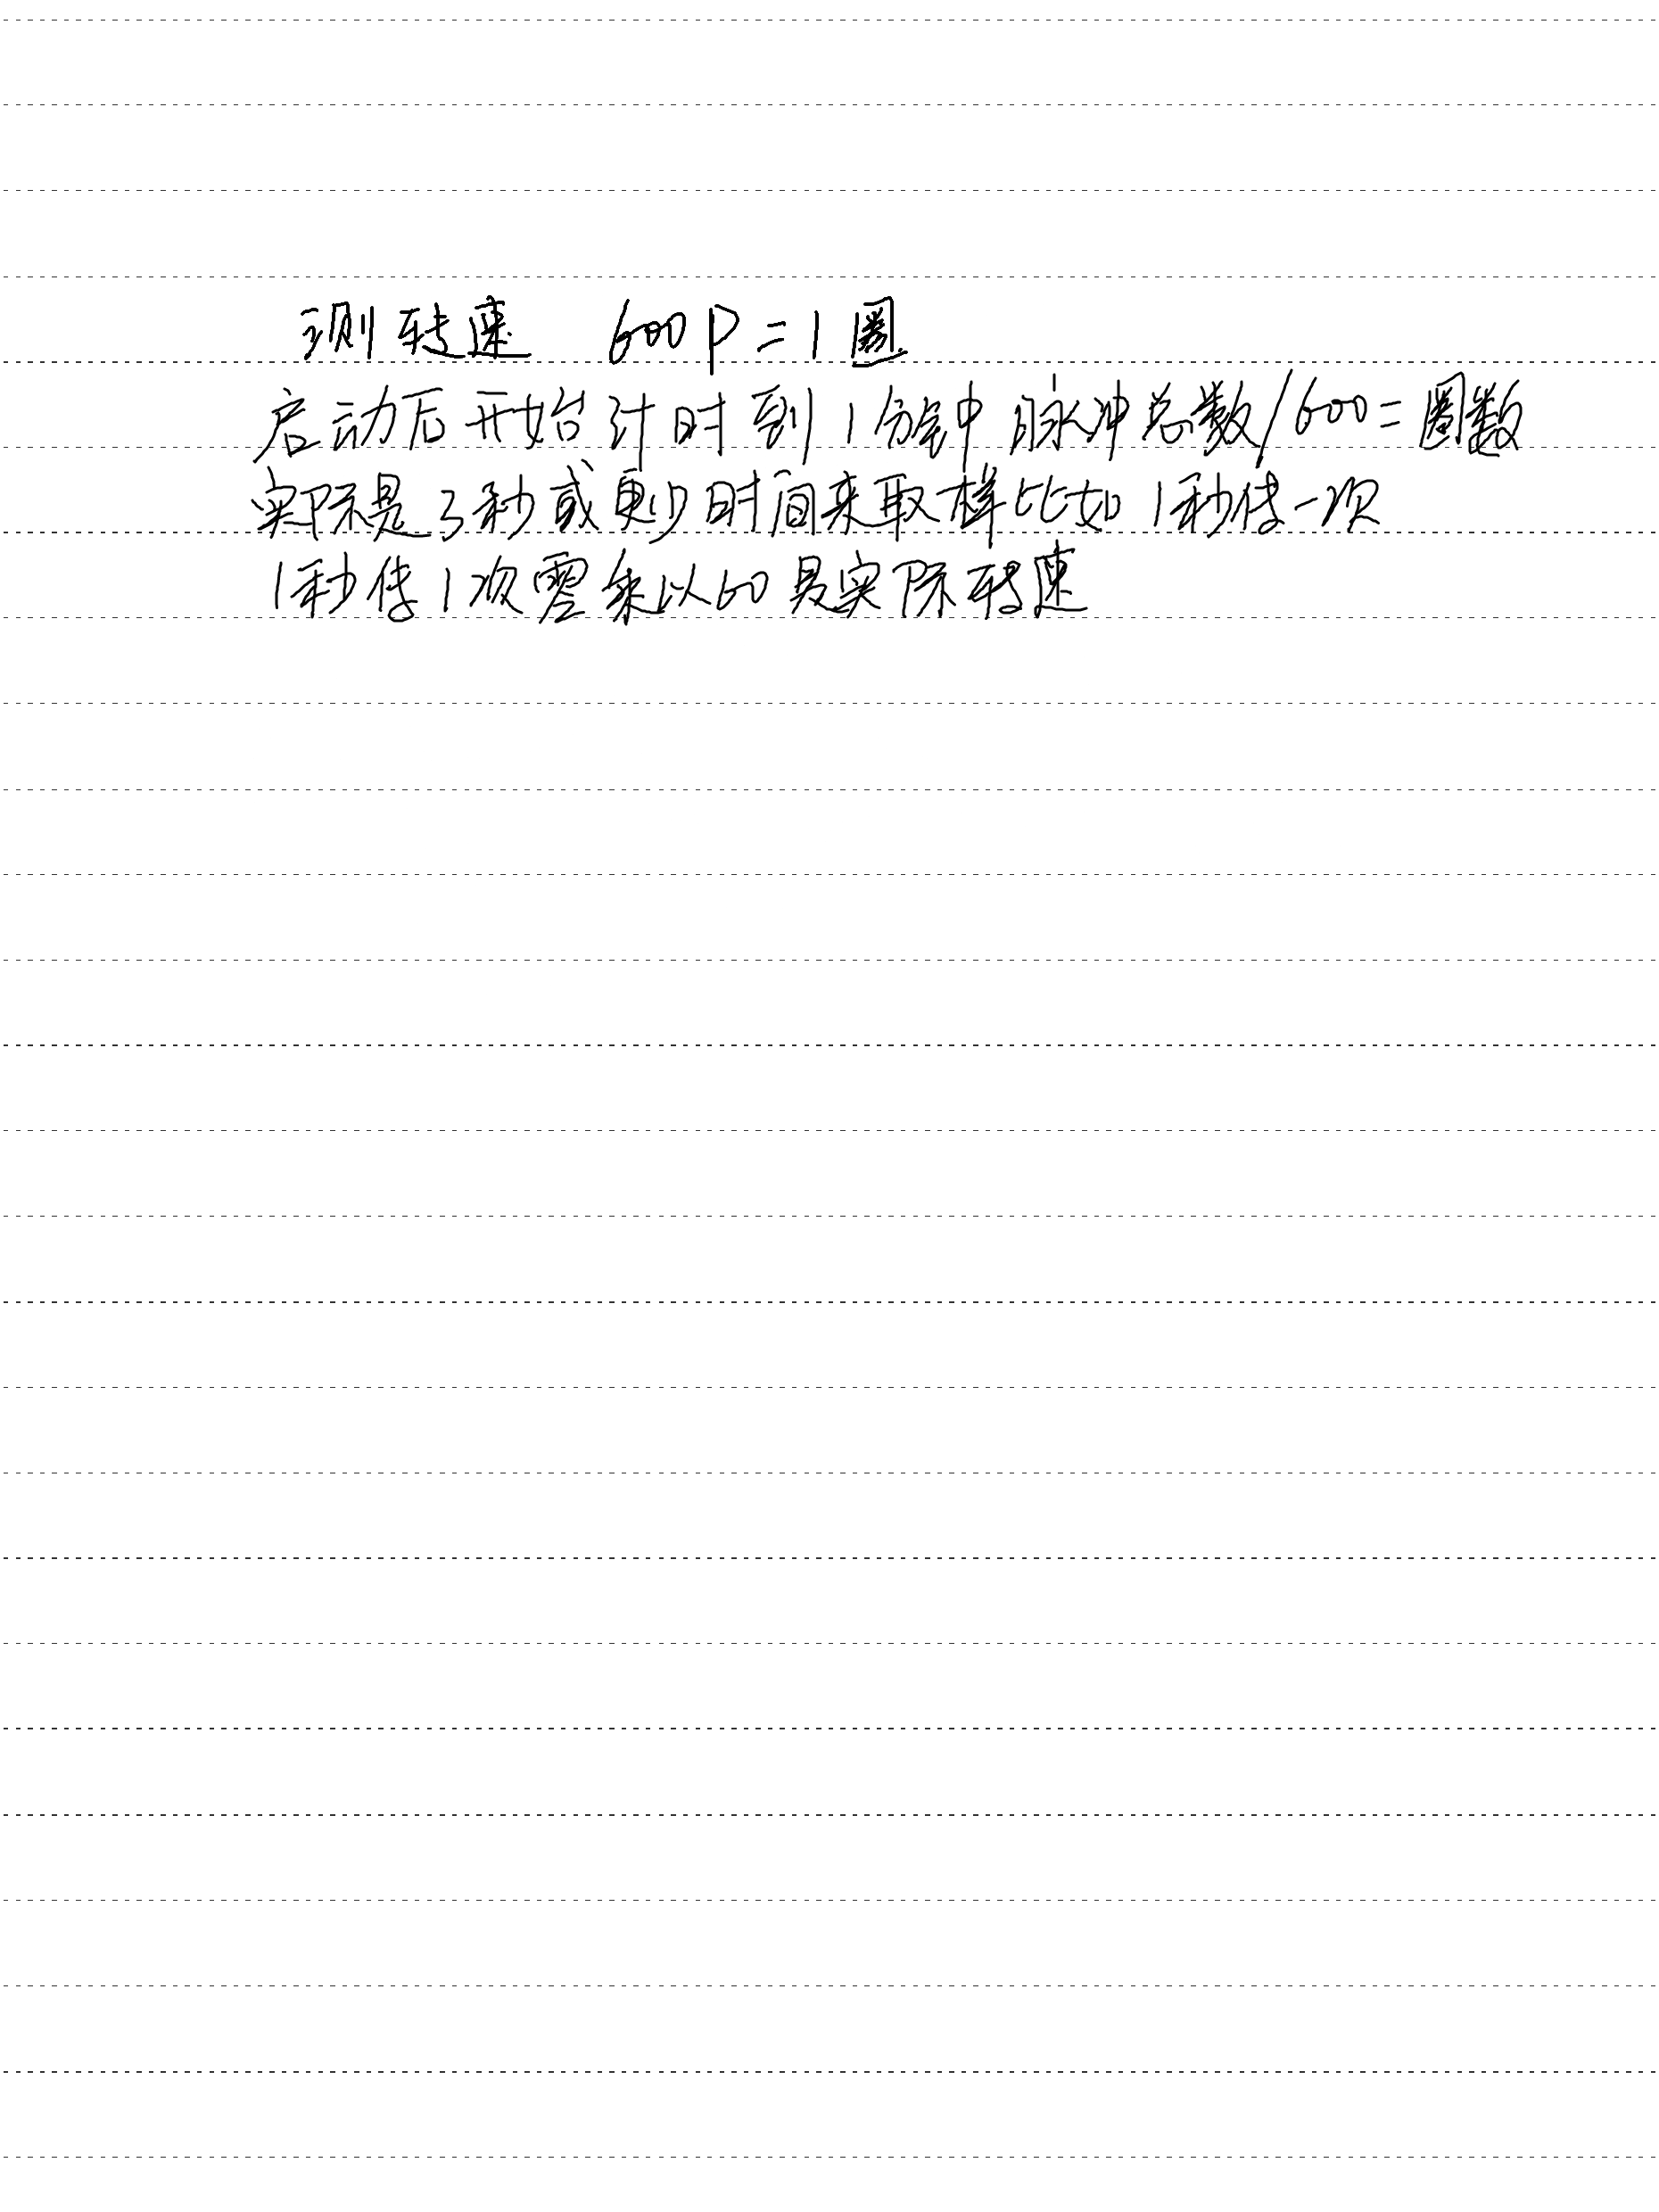 测转速 600P=1圈
启动后开始计时到1分钟中脉冲总数/600=圈数
实际是3秒或更少时间来取样比如1秒传一次
1秒传1次需乘以60是实际转速